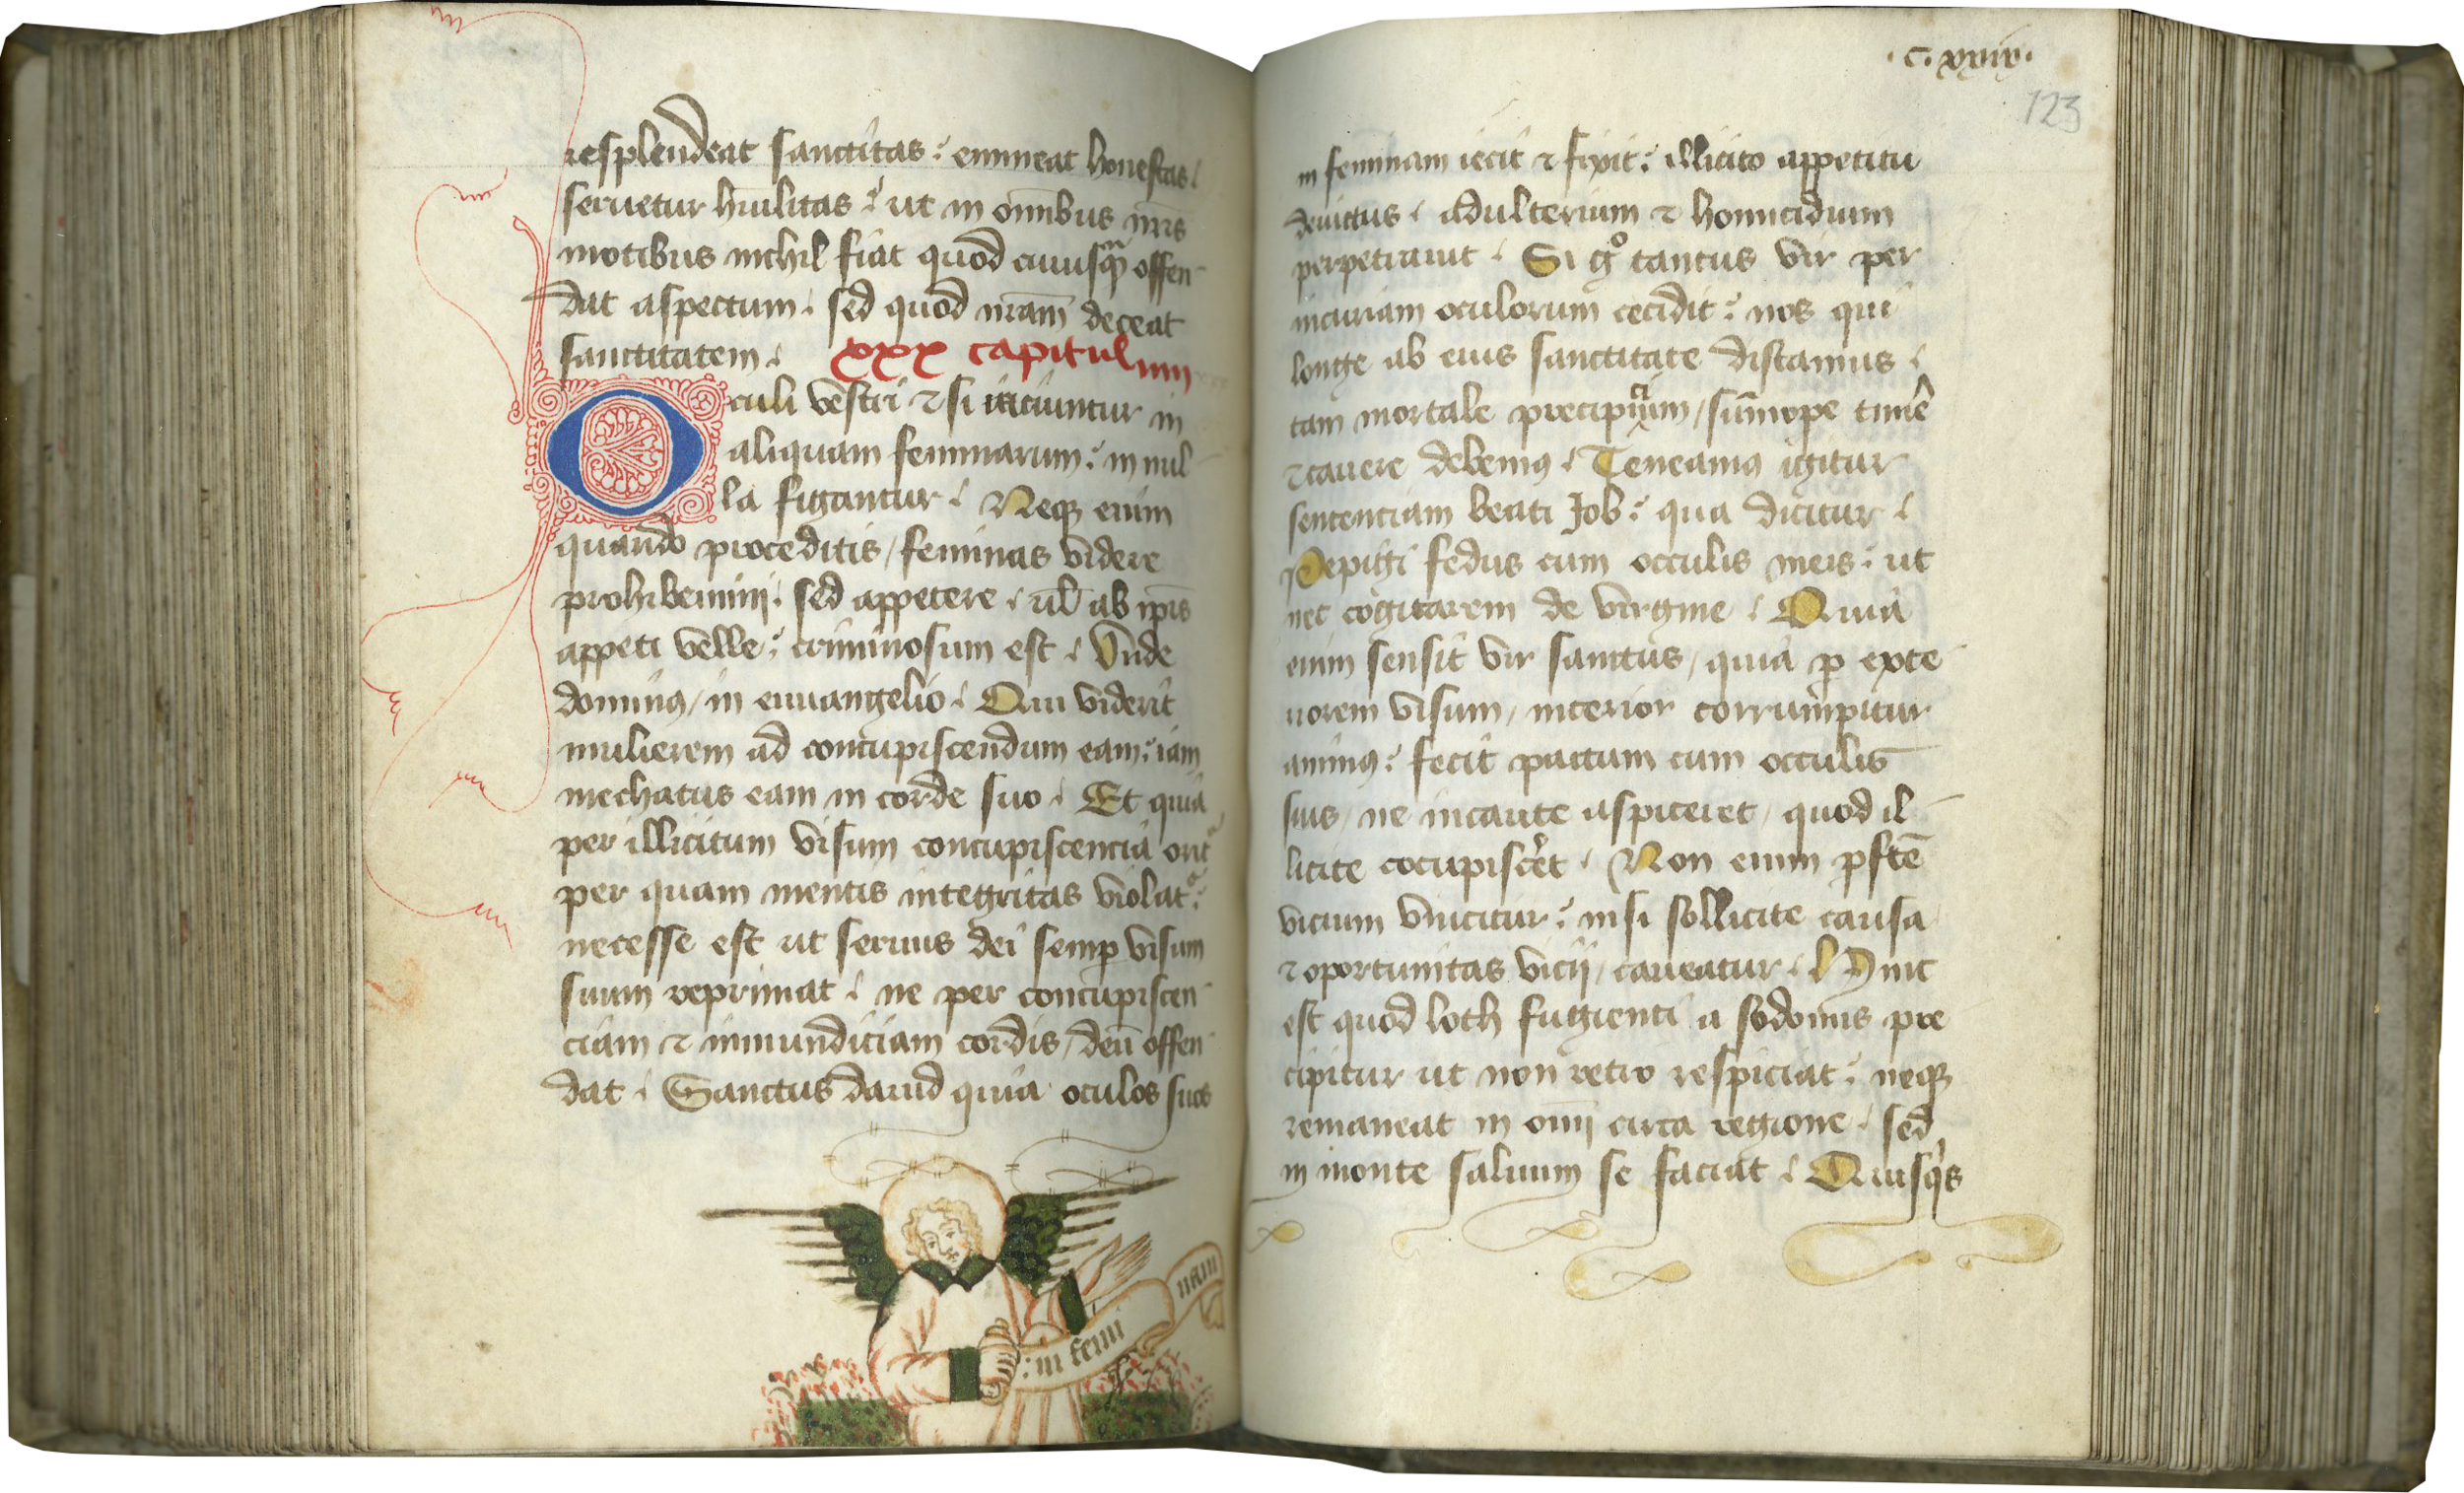 resplendeat sanctitas: emineat honestas.
seruetur hūilitas: ut in omībus nr̄is
motibus nichil fiat quod cuiusqͣȝ offen-
dat aspectum. sed quod nr̄am deceat
sanctitatem.
xxx capitulum
Oculi vestri ⁊ si iaciuntur in
aliquam feminarum: in nul-
la figantur. Neqȝ enim
quando proceditis/ feminas videre
prohibemini: sed appetere. ul̄ ab ip̄is
appeti velle: criminosum est. Vnde
dominꝰ/ in euuangelio. Qui viderit
mulierem ad concupiscendum eam: iam
mechatus eam in corde suo. Et quia
per illicitum visum concupiscencia orit᷑
per quam mentis integritas violat᷑:
necesse est ut seruus dei semꝑ visum
suum reprimat. ne per concupiscen-
ciam ⁊ inmundiciam cordis/ deū offen-
dat. Sanctus dauid quia oculos suos
: in femi
nam
.c. xxiij.
123
in feminam iecit ⁊ fixit: illicito appetitu
deuictus. adulterium ⁊ homicidium
perpetrauit. Si gͦ tantus vir per
incuriam oculorum cecidit: nos qui
longe ab eius sanctitate distamus.
tam mortale precipicium/ sūmope timē
⁊ cauere debemꝰ. Teneamꝰ igitur
sentenciam beati Job: qua dicitur.
Pepigi fedus cum occulis meis: ut
nec cogitarem de virgine. Quia
enim sensit vir sanctus/ quia ꝑ exte-
riorem visum/ interior corrumpitur
animꝰ: fecit pactum cum occulis
suis/ ne incaute aspiceret/ quod il-
licite cōcupiscēt. Non enim ꝑfcē
vicium vincitur: nisi sollicite causa
⁊ oportunitas vicij/ caueatur. Hinc
est quod loth fugienti a sodomis pre-
cipitur ut non retro respiciat: neqȝ
remaneat in omī circa regione. sed
in monte saluum se faciat. Quisqͥs